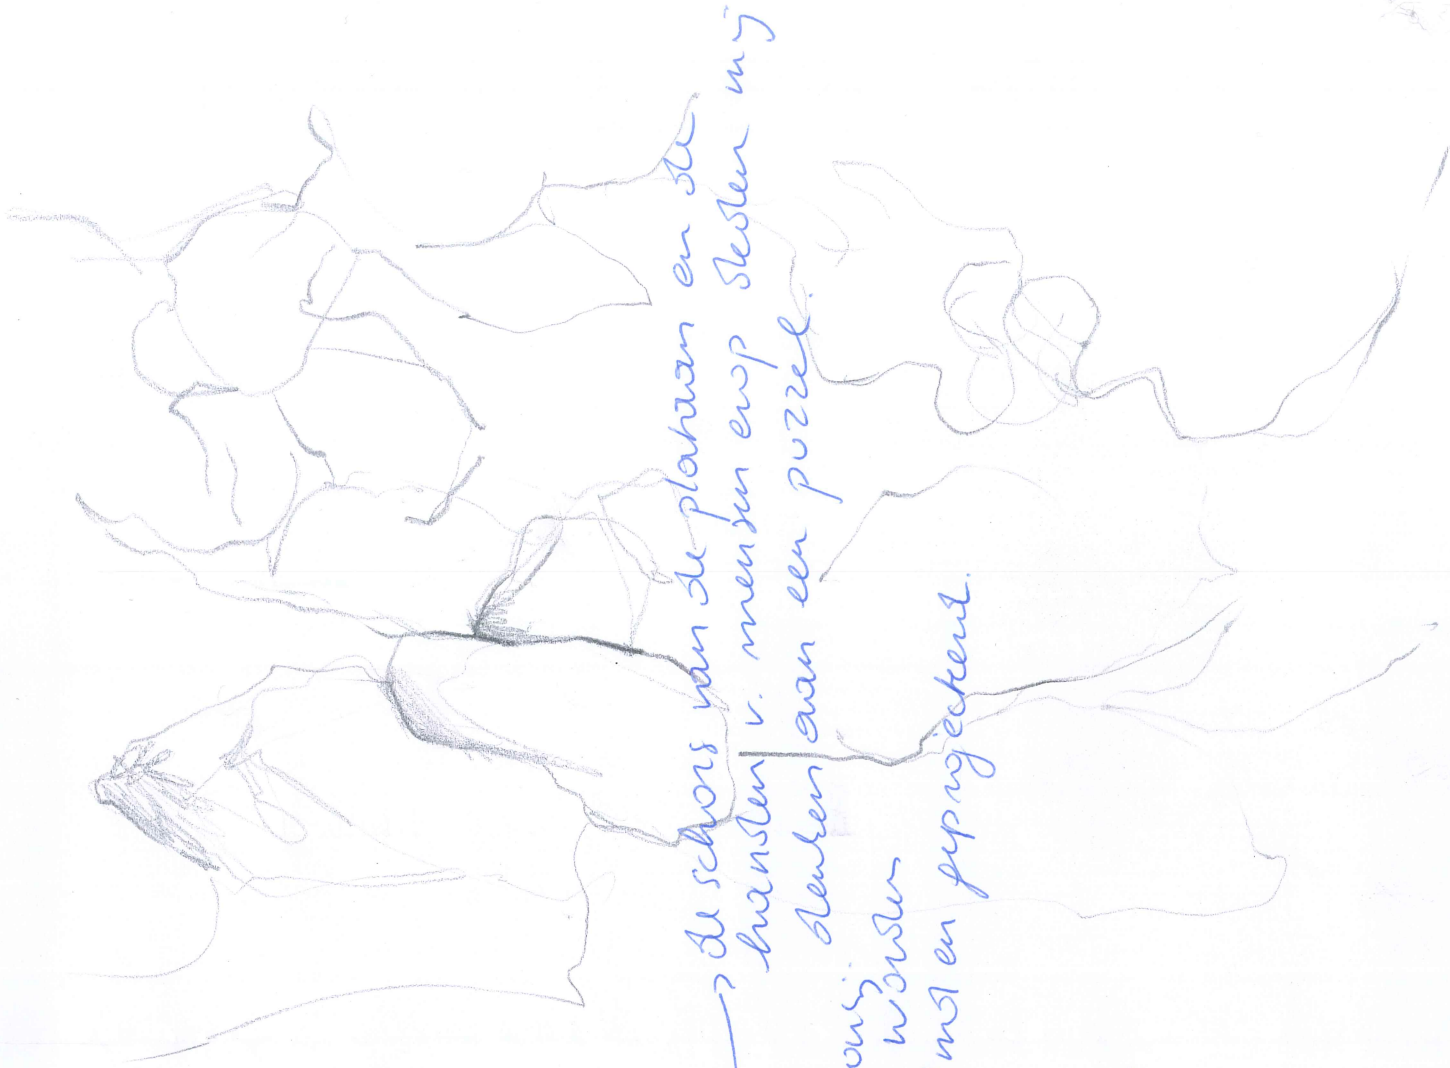 → de schors van de plataan en de
handen v. mensen erop deden mij
denken aan een puzzel.
worden
en geprojecteerd.